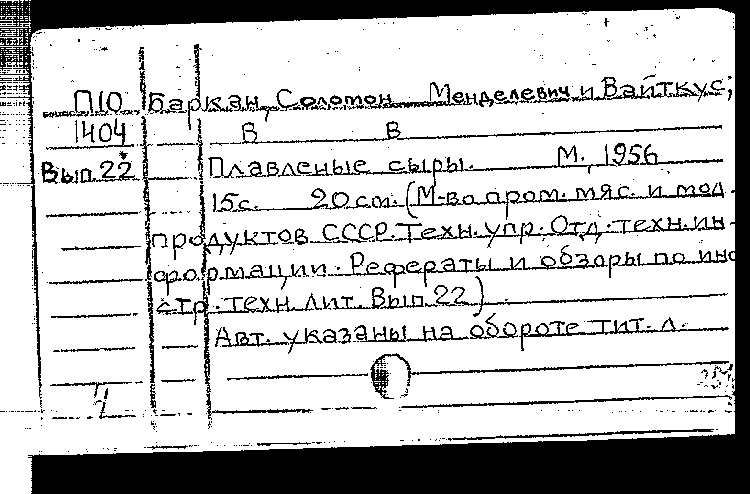 П10 Баркан, Соломон Менделевич и Вайткус,
1404 В В
Вып. 22* Плавленые сыры. М., 1956
15 с. 20 см. (М-во пром. мяс. и мол.
продуктов СССР. Техн. упр. Отд. техн. ин-
формации. Рефераты и обзоры по ино
стр. техн. лит. Вып. 22)
Авт. указаны на обороте тит. л.